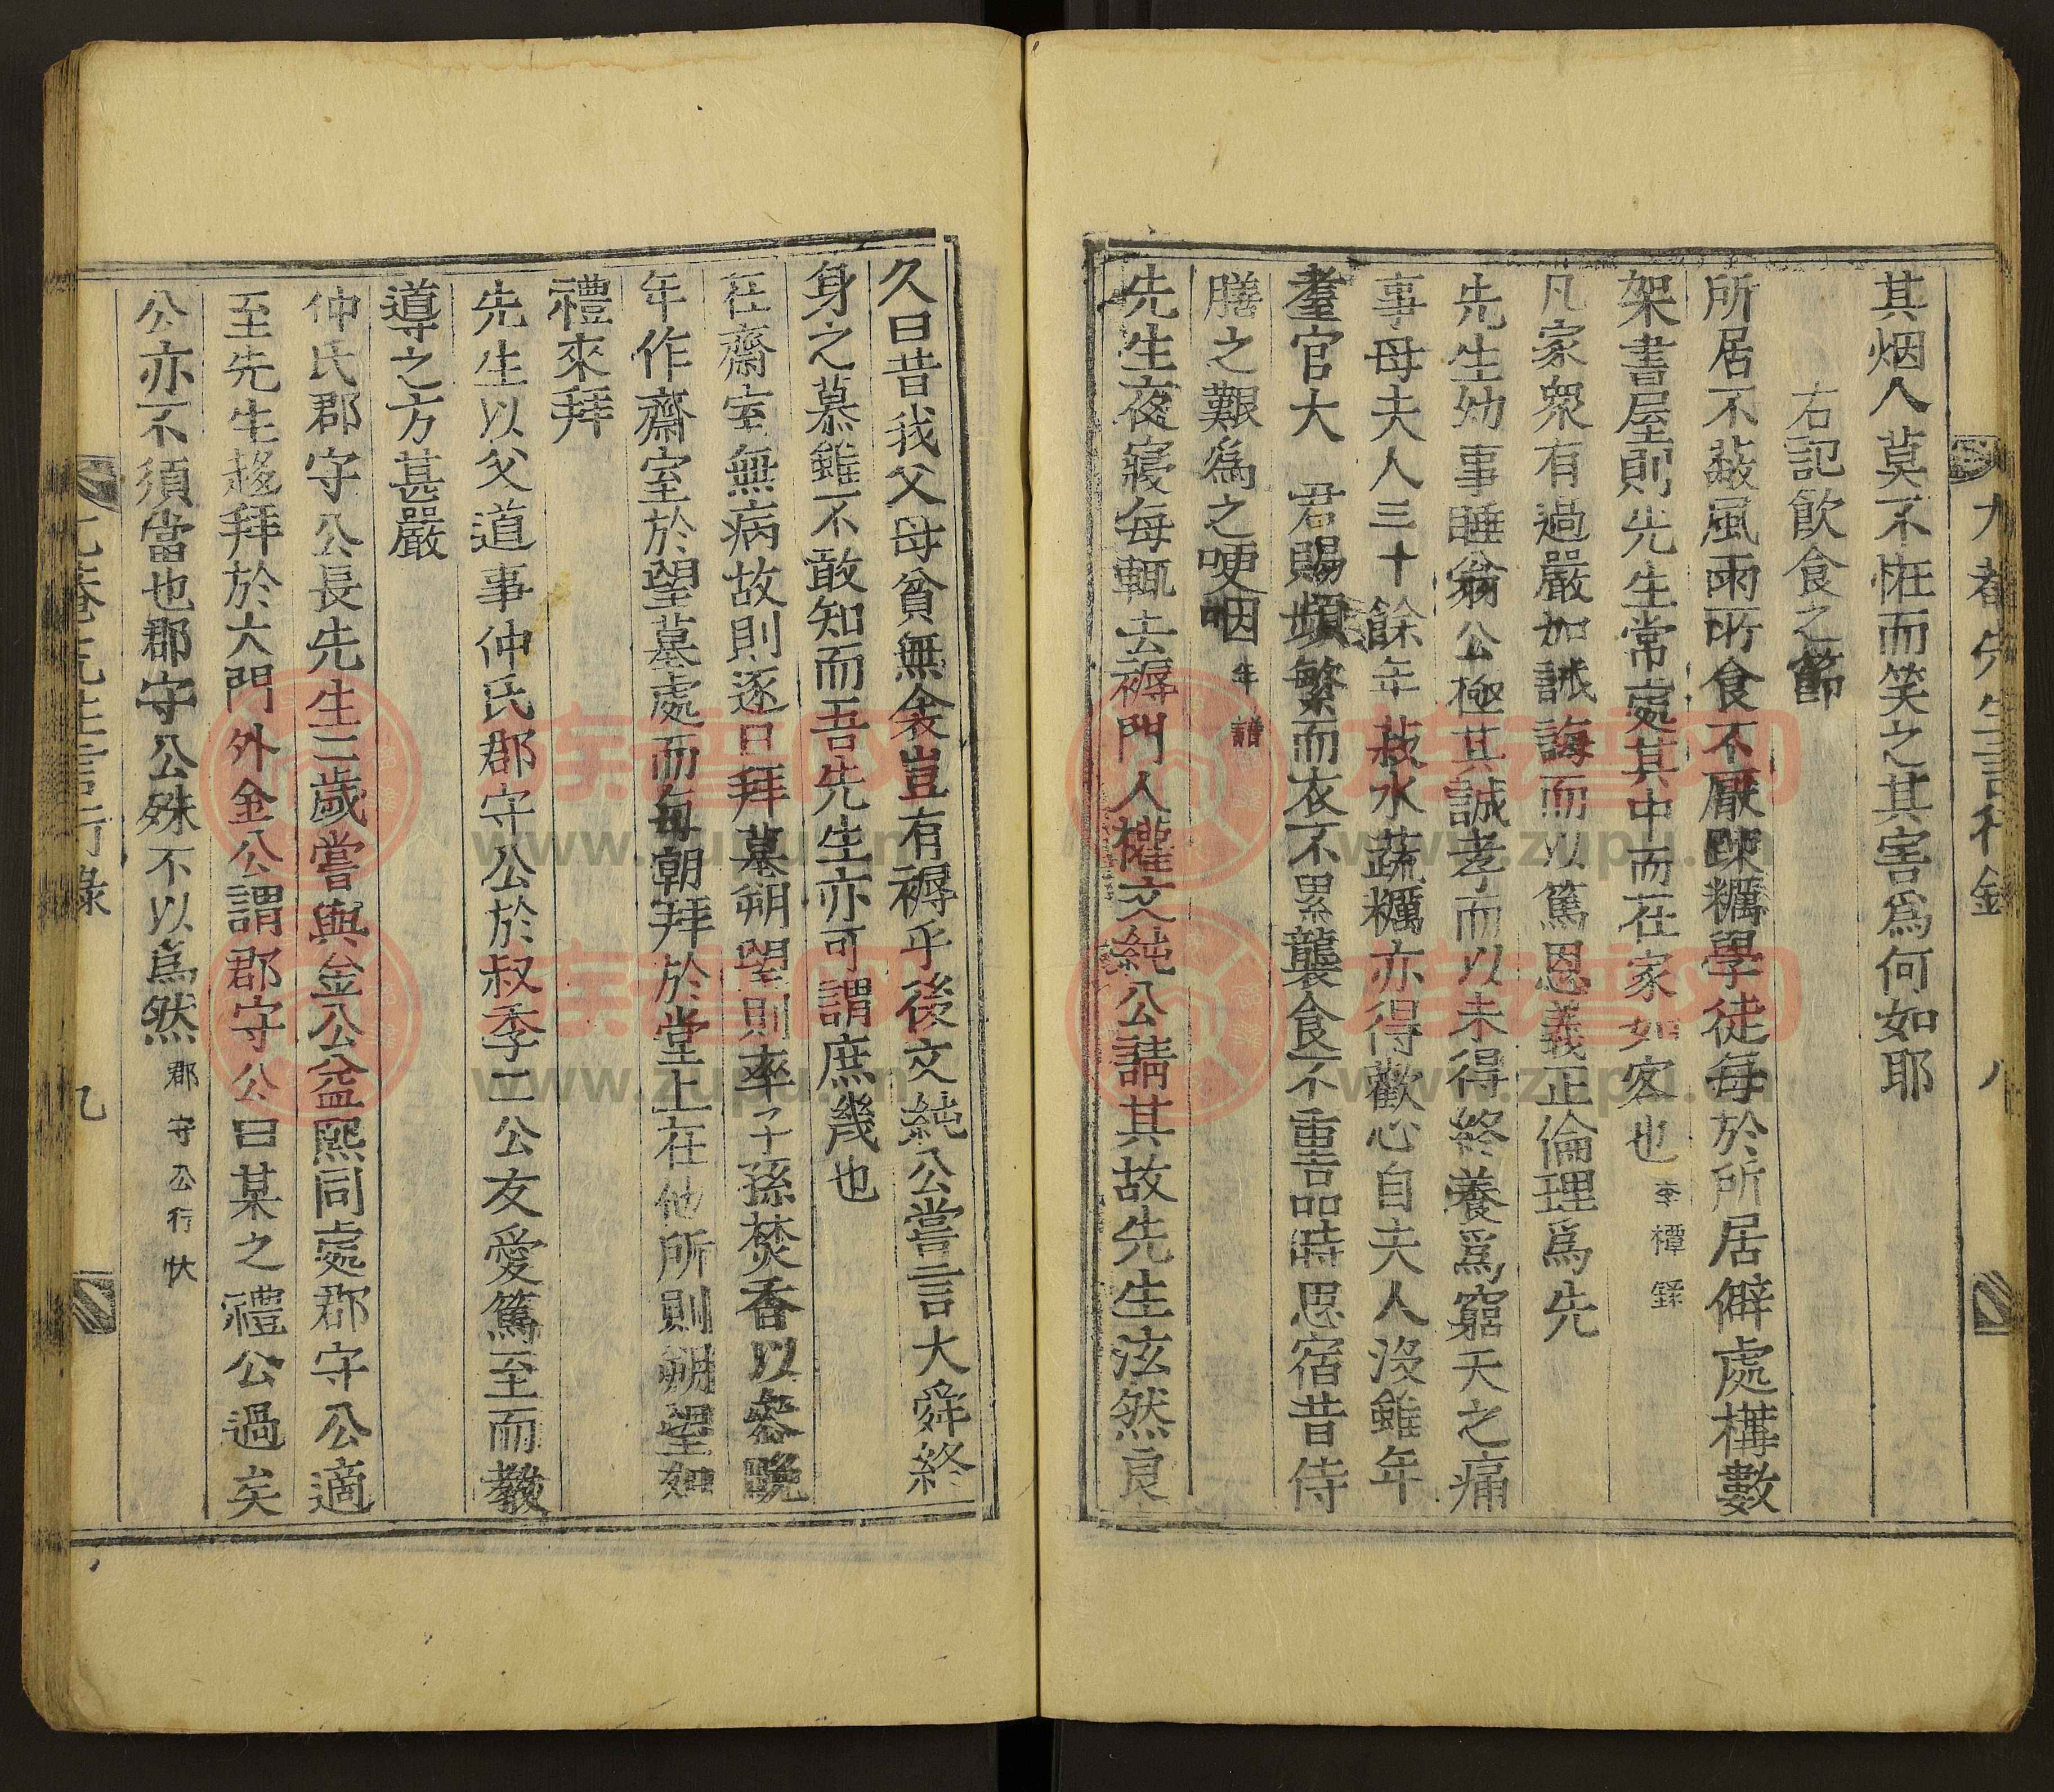 其烟人莫不恠而笑之其害為何如耶
右記飲食之節
所居不蔽風雨所食不厭踈糲學徒每於所居僻處構數
架書屋則先生常處其中而在家如客也 李橝錄
凡家衆有過嚴加誡誨而以篤恩義正倫理爲先
先生幼事睡翁公極其誠孝而以未得終養爲窮天之痛
事母夫人三十餘年菽水蔬糲亦得歡心自夫人沒雖年
耋官大 君賜頻繁而衣不累襲食不重品時思宿昔侍
膳之艱爲之哽咽 年譜
先生夜寢每輒去褥門人權文純公請其故先生泫然良
久曰昔我父母貧無衾豈有褥乎後文純公嘗言大舜終
身之慕雖不敢知而吾先生亦可謂庶幾也
在齋室無病故則逐日拜墓朔望則率子孫焚香以參晩
年作齋室於望墓處而每朝拜於堂上在他所則朔望如
禮來拜
先生以父道事仲氏郡守公於叔季二公友愛篤至而敎
導之方甚嚴
仲氏郡守公長先生三歲嘗與金公益熙同處郡守公適
至先生趍拜於大門外金公謂郡守公曰某之禮公過矣
公亦不須當也郡守公殊不以爲然 郡守公行狀
九
八
www.zupu.cn
www.zupu.cn
www.zupu.cn
www.zupu.cn